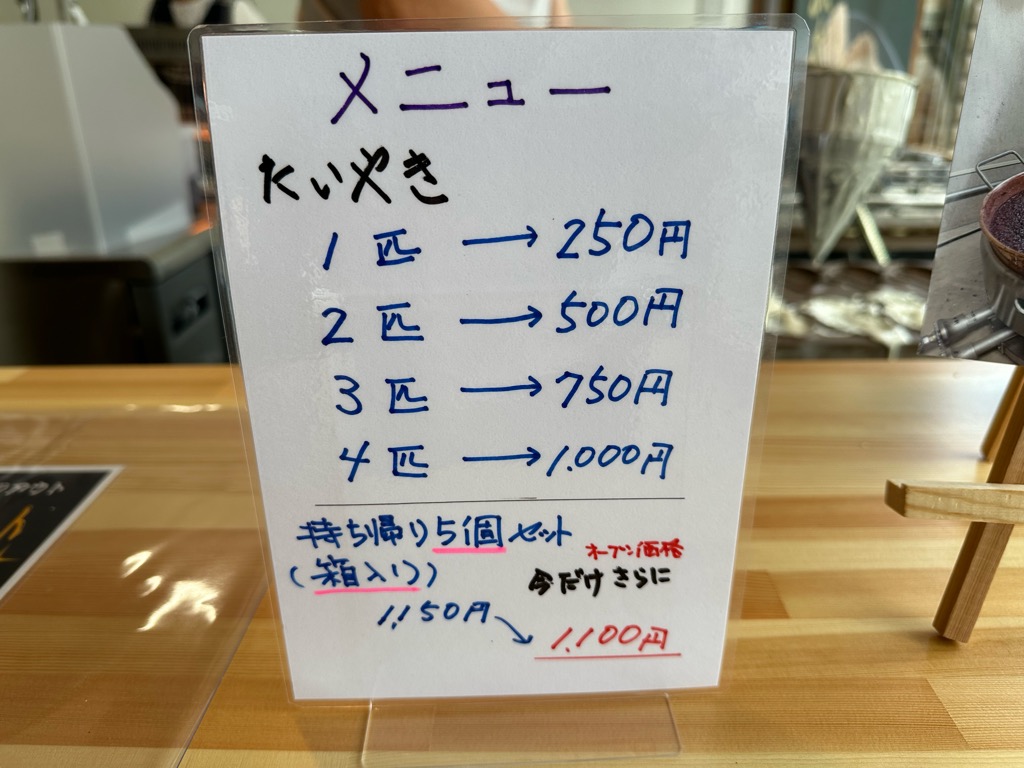 メニュー
たいやき
1匹 → 250円
2匹 → 500円
3匹 → 750円
4匹 → 1,000円
持ち帰り5個セット
(箱入り)
オープン価格
今だけさらに
1,150円
1,100円
アウト